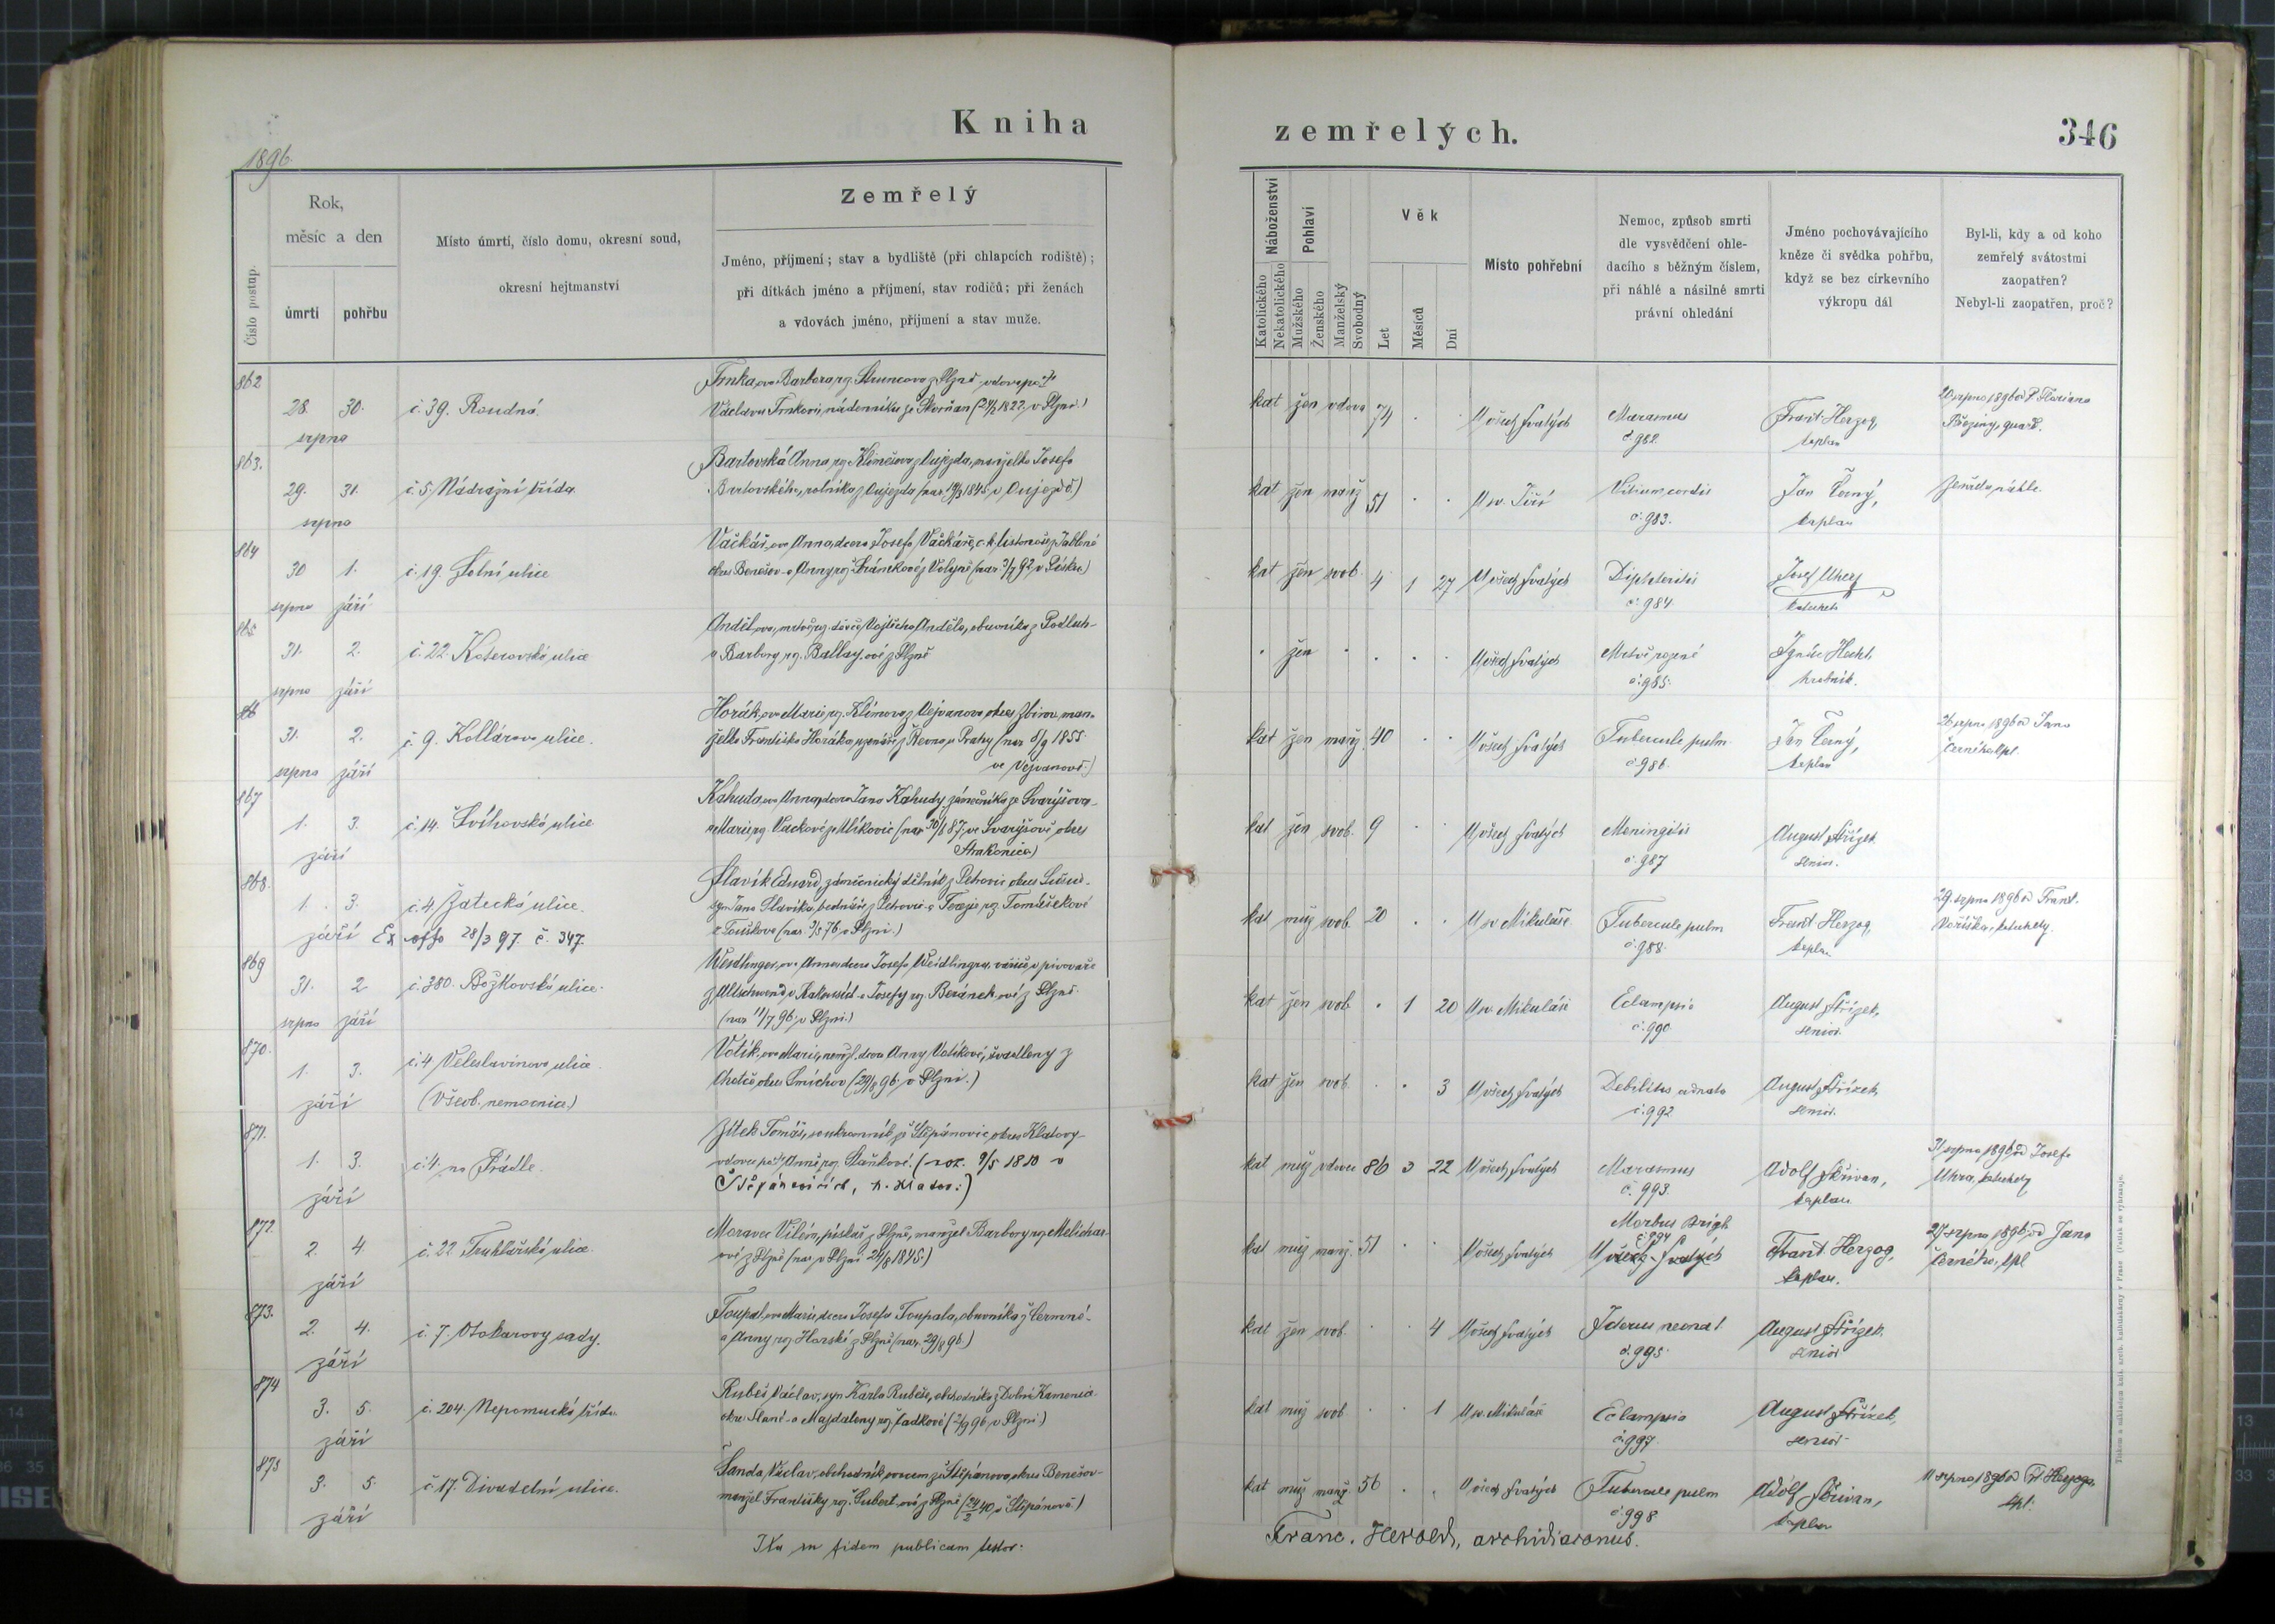 Kniha
zemřelých.
346
1896.
Číslo postup.
Rok,
měsíc a den
úmrtí
pohřbu
Místo úmrtí, číslo domu, okresní soud,
okresní hejtmanství
Zemřelý
Jméno, příjmení; stav a bydliště (při chlapcích rodiště);
při dítkách jméno a příjmení, stav rodičů; při ženách
a vdovách jméno, příjmení a stav muže.
Náboženství
Katolického
Nekatolického
Pohlaví
Mužského
Ženského
Manželský
Svobodný
Věk
Let
Měsíců
Dní
Místo pohřební
Nemoc, způsob smrti
dle vysvědčení ohle-
dacího s běžným číslem,
při náhlé a násilné smrti
právní ohledání
Jméno pochovávajícího
kněze či svědka pohřbu,
když se bez církevního
výkropu dál
Byl-li, kdy a od koho
zemřelý svátostmi
zaopatřen?
Nebyl-li zaopatřen, proč?
862
28. 30. srpna
č. 39. Roudná.
Trnka, ova Barbora, roz. z Plzně vdova po †
Václavu Trnkovi, nádenníku ze Skvrňan (24/ 1822 v Plzni.)
kat žen vdova 74 U všech Svatých
Marasmus
č. 982.
Frant. Herzog,
kaplan
20 srpna 1896 od P. Floriana
863.
29. 31. srpna
č. 5. Nádražní třída
Bartovská Anna, roz. Klimešova z Oujezda, manželka Josefa
Bartovského, rolníka z Oujezda (nar. 1845 v Oujezdě.)
kat žen manž 51 U sv. Jiří
Vitium cordis
č. 983.
Jan Černý,
kaplan
Zemřela náhle.
864
30 1. srpna září
č. 19. Solní ulice
Vačkář, ova Anna, dcera Josefa Vačkáře, c. k. listonoše z Jablené
okres Benešov a Anny roz. z Volyně (nar. 3/7 92 v Písku)
kat žen svob. 4 1 27 U všech Svatých
Diphteritis
č. 984.
Josef Uher
katecheta
865
31. 2. srpna září
č. 22 Koterovská ulice
Anděl, ova, mrtvě roz. děvče Vojtěcha Anděla, obuvníka z Podluh
a Barbory roz. Ballay, ové z Plzně
žen U všech Svatých
Mrtvě rozené
č. 985.
Ignác Hecht
hrobník.
866
31. 2. srpna září
č. 9. Kollárova ulice.
Horák, ova Marie, roz. Klímova z Vejvanova okres Zbirov, man-
želka Františka Horáka, uzenáře z Řevna u Prahy (nar. 8/9 1855
ve Vejvanově.)
kat žen manž. 40 U všech Svatých
Tubercule pulm.
č. 986.
Jan Černý,
kaplan
26 srpna 1896 od Jana
Černého kpl.
867
1. 3. září
č. 14. Švihovská ulice
Kahuda, ova Anna, dcera Jana Kahudy, zámečníka ze Svaryšova
a Marie, roz. Vackové z Mlíkovic (nar. 30/ 87, ve Svaryšově, okres
Strakonice)
kat žen svob. 9 U všech Svatých
Meningitis
č. 987
August Střízek
senior.
868.
1. 3. září
č. 4 Žatecká ulice.
Ex offo 28/3 97. č. 347.
Slavík Eduard, zámečnický dělník z Petrovic okres Sušice
syn Jana Slavíka, bednáře z Petrovic a Terezie, roz. Tomáškové
z Touškova (nar. 76 v Plzni.)
kat muž svob. 20 U sv Mikuláše
Tubercule pulm
č. 988.
Frant Herzog,
kaplan
29. srpna 1896 od Frant.
Voříška, katechety.
869
31. 2. srpna září
č. 380. Božkovská ulice.
Weidlinger, ova Anna, dcera Josefa Weidlingra, v pivovaře
z Altschwend v Rakousích a Josefy roz. Beránek, ové z Plzně.
(nar. 11/7 96. v Plzni.)
kat žen svob. 1 20 U sv. Mikuláše
Eclampsie
č. 990
August Střízek,
senior.
870.
1. 3. září
č. 4 Veleslavínova ulice.
(Všeob. nemocnice.)
Votík, ova Marie, nemanž. dcera Anny Votíkové, švadleny z
Chotče okres Smíchov (29/8 96. v Plzni.)
kat žen svob. 3 U všech Svatých
Debilitas adnata
č. 992
August Střízek,
senior.
871.
1. 3. září
č. 4. na Prádle.
Zítek Tomáš, soukromník ze Štěpánovic okres Klatovy
vdovec po † Anně roz. Staňkové. (roz. 9/5 1810 v
Štěpánovicích, h. Klatov.)
kat muž vdovec 86 3 22 U všech Svatých
Marasmus
č. 993.
Adolf Skřivan,
kaplan.
31 srpna 1896 od Josefa
Uhra, katechety
872.
2. 4. září
č. 22. Truhlářská ulice.
Moravec Vilém, pískař z Plzně, manžel Barbory roz. Melichar-
ové z Plzně (nar. v Plzni 24/8 1845.)
kat muž manž. 51 U všech Svatých
Morbus Brigh
č. 994
U všech Svatých
Frant. Herzog,
kaplan.
27 srpna 1896, od Jana
Černého, kpl
873.
2. 4. září
č. 7. Otokarovy sady.
Toupal, ova Marie, dcera Josefa Toupala, obuvníka z Čermné
a Anny, roz. Horské z Plzně (nar. 29/8 96.)
kat žen svob. 4 U všech Svatých
Icterus neonat
č. 995.
August Střízek,
senior
874
3. 5. září
č. 204. Nepomucká třída.
Rubeš Václav, syn Karla Rubeše, obchodníka z Dolní Kamenice
okres Slaný a Majdaleny roz. Čadkové (2/9 96 v Plzni.)
kat muž svob 1 U sv. Mikuláše
Eclampsie
č. 997.
August Střízek,
senior
875
3. 5. září
č. 17. Divadelní ulice.
Šanda Václav, obchodník ovocem ze Štěpánova, okres Benešov
manžel Františky, roz. Šubert, ové z Plzně (24/2 40, v Štěpánově.)
kat muž manž. 56 U všech Svatých
Tubercule pulm
č. 998
Adolf Skřivan,
kaplan
11 srpna 1896 od Fr. Herzoga,
kpl.
Ita in fidem publicam testor:
Franc. Herold, archidiaconus.